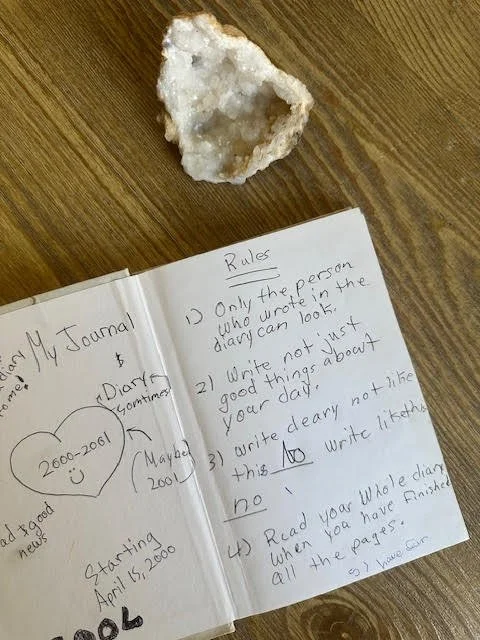 My Journal
&
Diary
Somtimes
2000-2001
(Maybe)
2001
ad & good
news
Starting
April 15, 2000
Rules
1) Only the person
who wrote in the
diary can look.
2) Write not just
good things about
your day.
3) write deary not like
this No write like this
no
4) Read your whole diary
when you have finished
all the pages.
have fun